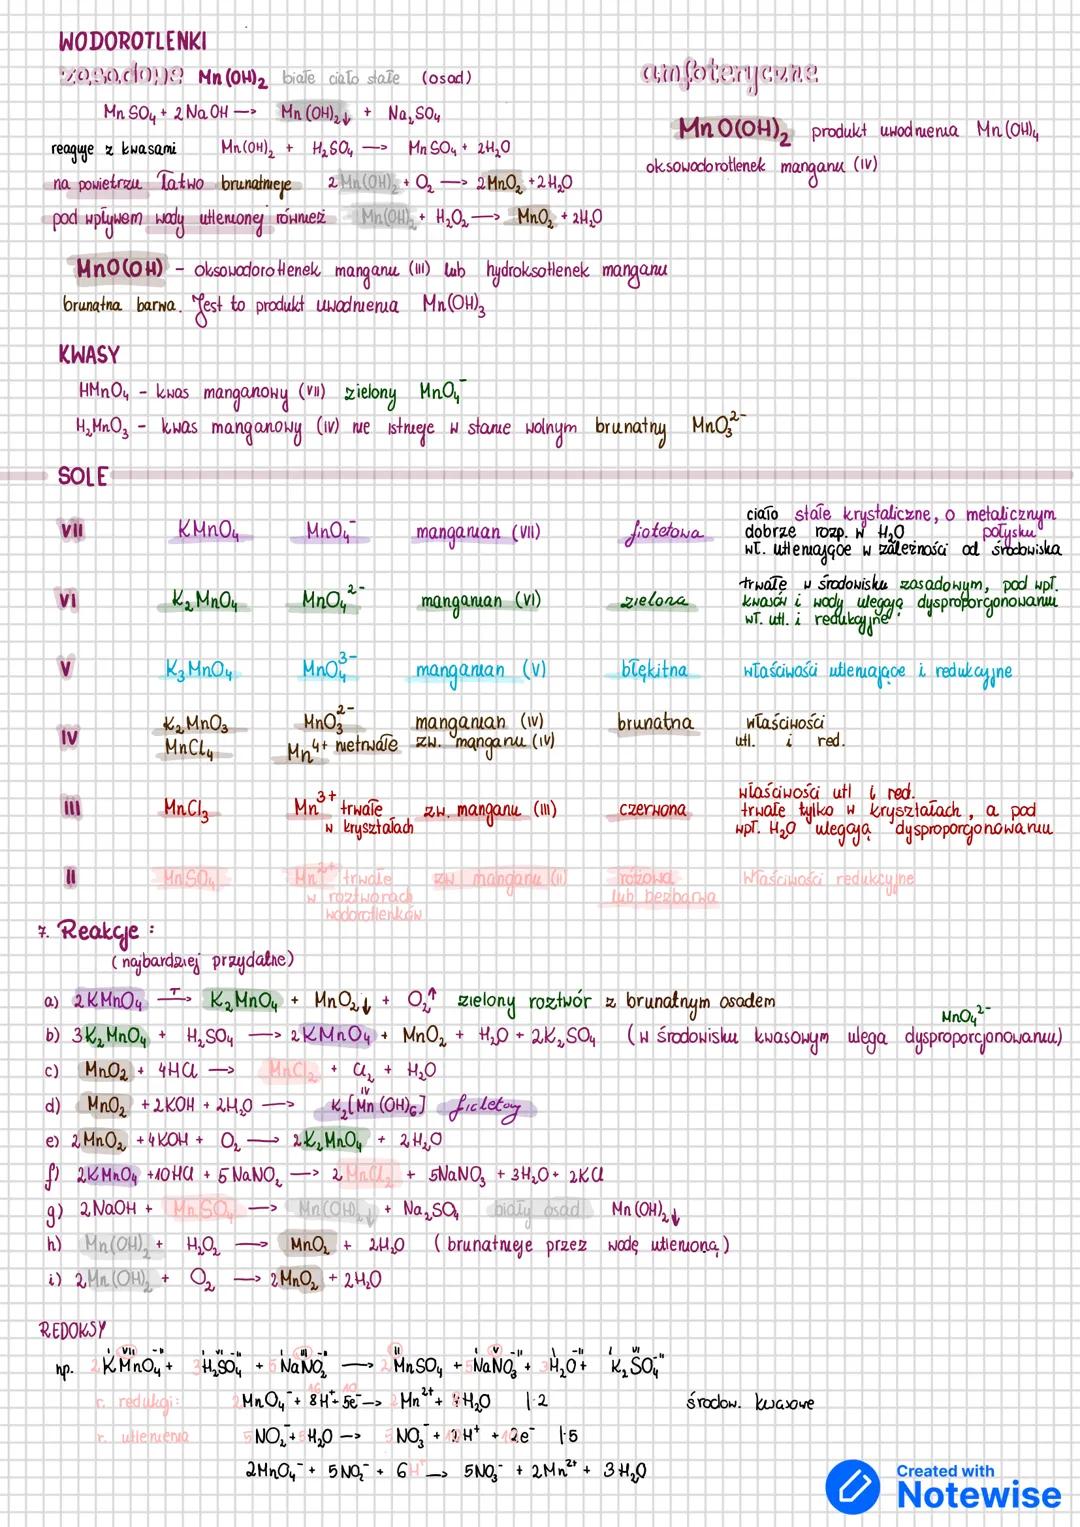 WODOROTLENKI
zasadowe Mn(OH)₂ białe ciało stałe (osad)
MnSO₄ + 2NaOH → Mn(OH)₂↓ + Na₂SO₄
reaguje z kwasami Mn(OH)₂ + H₂SO₄ → MnSO₄ + 2H₂O
na powietrzu łatwo brunatnieje 2Mn(OH)₂ + O₂ → 2MnO₂ + 2H₂O
pod wpływem wody utlenionej również Mn(OH)₂ + H₂O₂ → MnO₂ + 2H₂O
amfoteryczne
MnO(OH)₂ produkt uwodnienia Mn(OH)₄
oksowodorotlenek manganu (IV)
MnO(OH) - oksowodorotlenek manganu (III) lub hydroksotlenek manganu
brunatna barwa. Jest to produkt uwodnienia Mn(OH)₃
KWASY
HMnO₄ - kwas manganowy (VII) zielony MnO₄⁻
H₂MnO₃ - kwas manganowy (IV) nie istnieje w stanie wolnym brunatny MnO₃²⁻
SOLE
VII KMnO₄ MnO₄⁻ manganian (VII) fioletowa ciało stałe krystaliczne, o metalicznym
dobrze rozp. w H₂O połysku
wł. utleniające w zależności od środowiska
VI K₂MnO₄ MnO₄²⁻ manganian (VI) zielona trwałe w środowisku zasadowym, pod wpł.
kwasów i wody ulegają dysproporcjonowaniu
wł. utl. i redukcyjne
V K₃MnO₄ MnO₄³⁻ manganian (V) błękitna właściwości utleniające i redukcyjne
IV K₂MnO₃ MnO₃²⁻ manganian (IV) brunatna właściwości
MnCl₄ Mn⁴⁺ nietrwałe zw. manganu (IV) utl. i red.
III MnCl₃ Mn³⁺ trwałe w kryształach zw. manganu (III) czerwona właściwości utl i red.
trwałe tylko w kryształach, a pod
wpł. H₂O ulegają dysproporcjonowaniu
II MnSO₄ Mn²⁺ trwałe zw manganu (II) różowa Właściwości redukcyjne
w roztworach lub bezbarwa
wodorotlenków
7. Reakcje:
(najbardziej przydatne)
a) 2KMnO₄ T→ K₂MnO₄ + MnO₂↓ + O₂↑ zielony roztwór z brunatnym osadem
MnO₄²⁻
b) 3K₂MnO₄ + H₂SO₄ → 2KMnO₄ + MnO₂ + H₂O + 2K₂SO₄ (w środowisku kwasowym ulega dysproporcjonowaniu)
c) MnO₂ + 4HCl → MnCl₂ + Cl₂ + H₂O
d) MnO₂ + 2KOH + 2H₂O → K₂[Mn(OH)₆] IV fioletowy
e) 2MnO₂ + 4KOH + O₂ → 2K₂MnO₄ + 2H₂O
f) 2KMnO₄ + 10HCl + 5NaNO₂ → 2MnCl₂ + 5NaNO₃ + 3H₂O + 2KCl
g) 2NaOH + MnSO₄ → Mn(OH)₂↓ + Na₂SO₄ biały osad Mn(OH)₂↓
h) Mn(OH)₂ + H₂O₂ → MnO₂ + 2H₂O (brunatnieje przez wodę utlenioną)
i) 2Mn(OH)₂ + O₂ → 2MnO₂ + 2H₂O
REDOKSY
np. 2KMnO₄ + 3H₂SO₄ + 5NaNO₂ → 2MnSO₄ + 5NaNO₃ + 3H₂O + K₂SO₄
r. redukcji: 2MnO₄⁻ + 8H⁺ 5e⁻ → 2Mn²⁺ + 4H₂O |·2 środow. kwasowe
r. utlenienia 5NO₂⁻ + 5H₂O → 5NO₃⁻ + 2H⁺ + 2e⁻ |·5
2MnO₄⁻ + 5NO₂⁻ + 6H⁺ → 5NO₃⁻ + 2Mn²⁺ + 3H₂O
Created with
Notewise